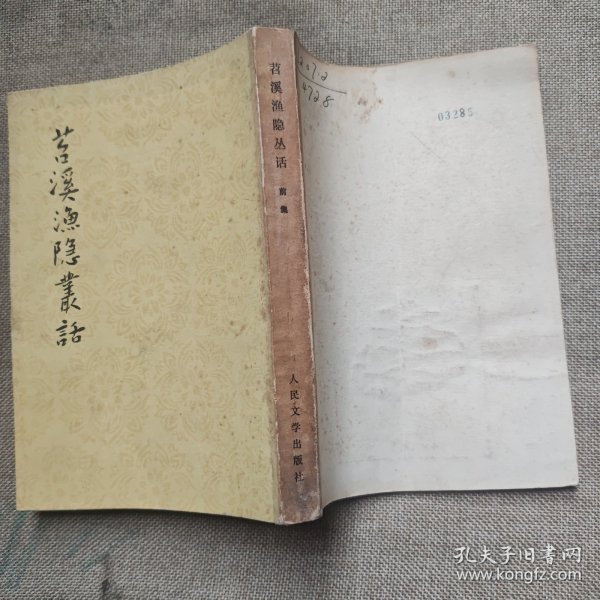 苕溪漁隐叢話
苕溪渔隐丛话
前集
人民文学出版社
4728
03285
孔夫子旧书网
www.kongfz.com